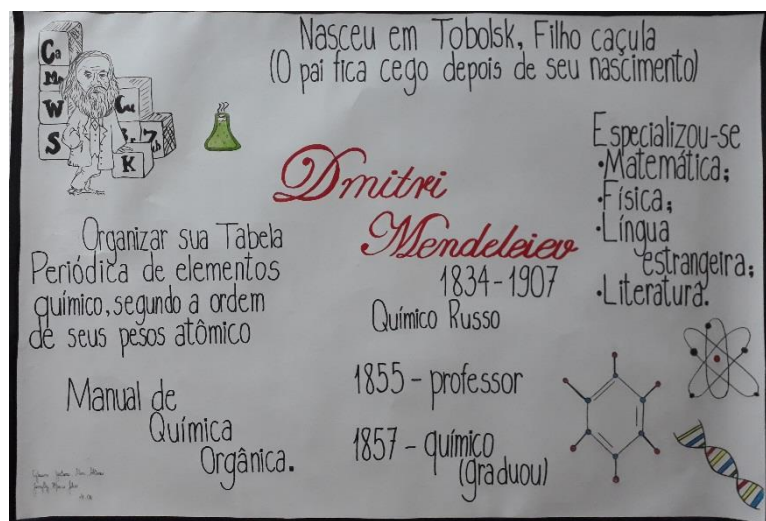 Nasceu em Tobolsk, Filho caçula
(O pai fica cego depois de seu nascimento)
Ca
W
S
Cu
K
Especializou-se
•Matemática;
•Física;
•Língua
estrangeira;
•Literatura.
Dmitri
Mendeleiev
1834-1907
Químico Russo
Organizar sua Tabela
Periódica de elementos
químico, segundo a ordem
de seus pesos atômico
Manual de
Química
Orgânica.
1855 - professor
1857 - químico
(graduou)